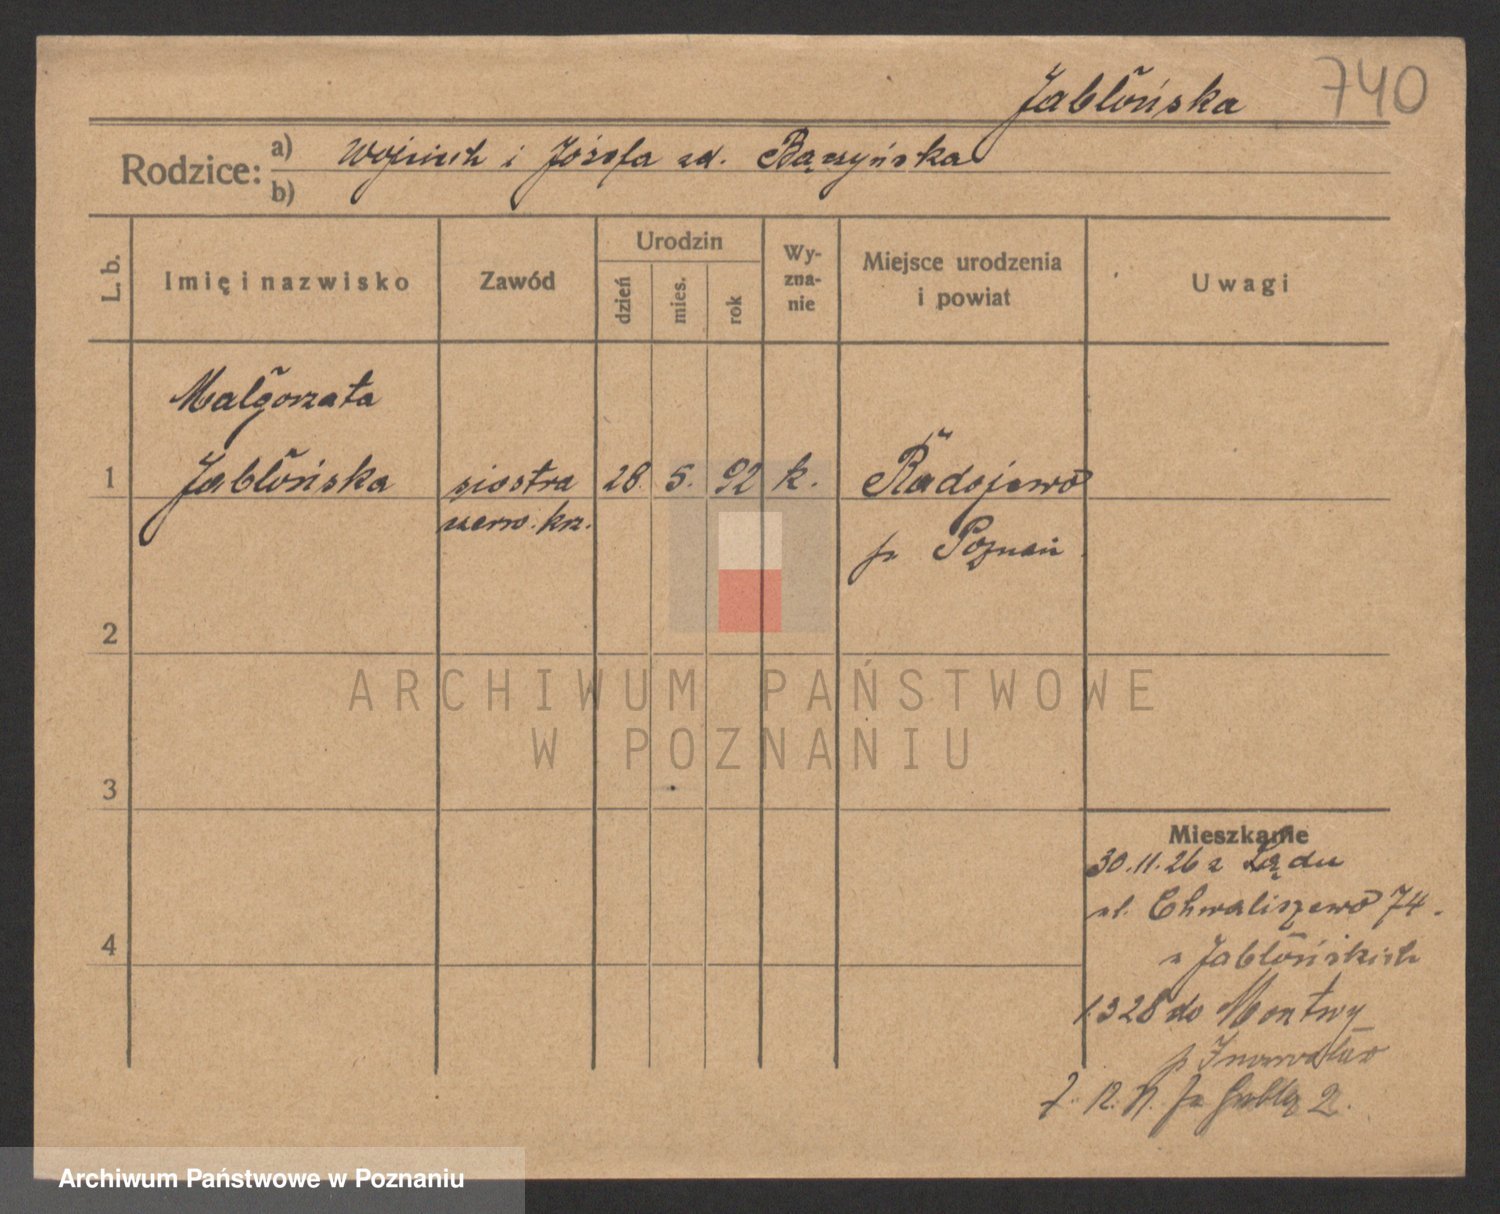 Jabłońska 740
Rodzice: a) Wojciech i Józefa zd. Bączyńska
b)
L. b.
Imię i nazwisko
Zawód
Urodzin
dzień
mies.
rok
Wy-
zna-
nie
Miejsce urodzenia
i powiat
Uwagi
Małgorzata
1 Jabłońska siostra 28. 5. 92 k. Radojewo
czerw. krz.
p. Poznań
2
ARCHIWUM PAŃSTWOWE
W POZNANIU
3
Mieszkanie
30.11.26 z Lądu
ul. Chwaliszewo 74.
4
z Jabłońskich
1328 do Montwy
p
7. 12. 2.
Archiwum Państwowe w Poznaniu